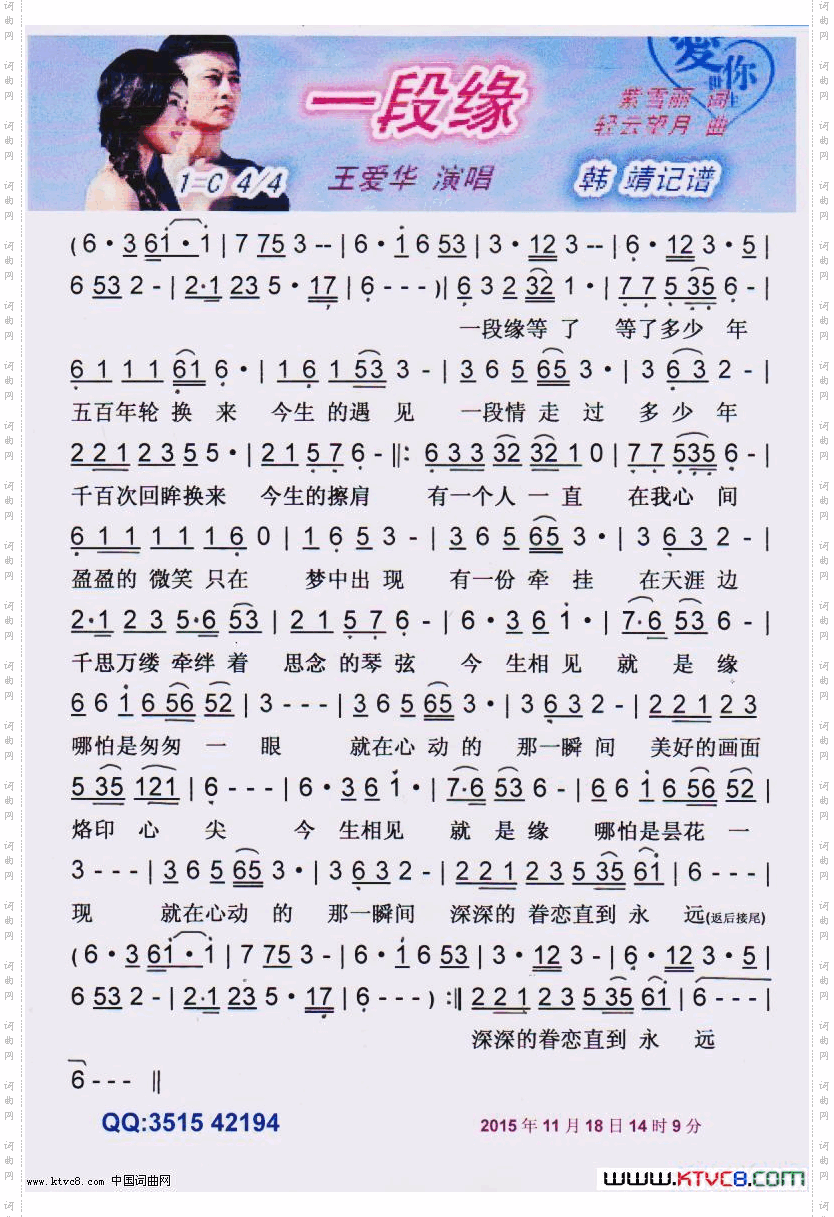 爱你
一段缘
紫雪丽 词
轻云望月 曲
1=C 4/4 王爱华 演唱 韩 靖记谱
(6·3 61·1|7 75 3--|6·1 6 53|3·12 3--|6·12 3·5|
6 53 2-|2·1 23 5·17|6---)|6 3 2 32 1·|7 7 5 35 6-|
一段缘等 了 等了多少 年
6 1 1 1 61 6·|1 6 1 53 3-|3 6 5 65 3·|3 63 2-|
五百年轮 换 来 今生 的遇 见 一段情 走 过 多 少 年
2 2 1 2 3 5 5·|2 1 5 7 6-‖:6 3 3 32 32 1 0|7 7 535 6-|
千百次回眸换来 今生的擦肩 有一个人 一 直 在我心 间
6 1 1 1 1 1 6 0|1 6 5 3-|3 6 5 65 3·|3 6 3 2-|
盈盈的 微笑 只在 梦中出 现 有一份 牵 挂 在天涯 边
2·1 2 3 5·6 53|2 1 5 7 6-|6·3 6 1·|7·6 53 6-|
千思万缕 牵绊 着 思念 的琴 弦 今 生相 见 就 是 缘
6 6 1 6 56 52|3---|3 6 5 65 3·|3 6 3 2-|2 2 1 2 3
哪怕是匆匆 一 眼 就在心 动 的 那一瞬 间 美好的画面
5 35 121|6---|6·3 6 1·|7·6 53 6-|6 6 1 6 56 52|
烙印 心 尖 今 生相见 就 是 缘 哪怕是昙花 一
3---|3 6 5 65 3·|3 6 3 2-|2 2 1 2 3 5 35 61|6---|
现 就在心动 的 那一瞬间 深深的 眷恋直到 永 远(返后接尾)
(6·3 61·1|7 75 3-|6·1 6 53|3·12 3-|6·12 3·5|
6 53 2-|2·1 23 5·17|6---):‖2 2 1 2 3 5 35 61|6---|
深深的眷恋直到 永 远
6---‖
QQ:3515 42194 2015年11月18日14时9分
www.ktvc8.com 中国词曲网 www.KTVC8.com